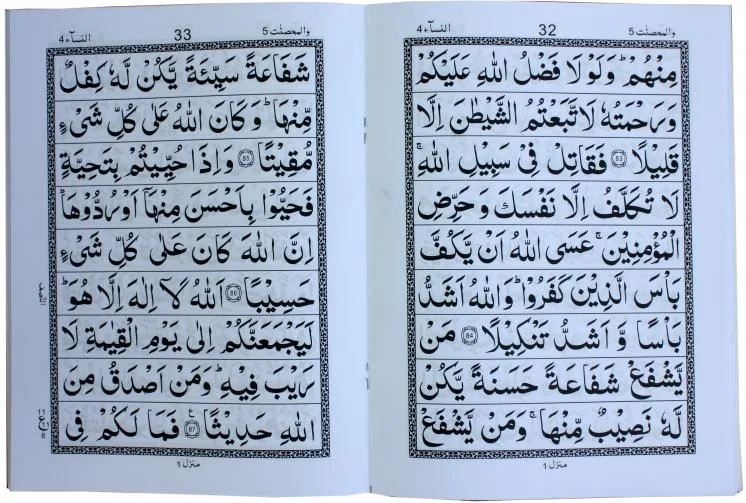 والمحصنٰت 5   32   النسآء 4
مِنْهُمْ ؕ وَلَوْ لَا فَضْلُ اللّٰهِ عَلَيْكُمْ
وَرَحْمَتُهٗ لَاتَّبَعْتُمُ الشَّيْطٰنَ اِلَّا
قَلِيْلًا ﴿83﴾ فَقَاتِلْ فِىْ سَبِيْلِ اللّٰهِ ۚ
لَا تُكَلَّفُ اِلَّا نَفْسَكَ وَ حَرِّضِ
الْمُؤْمِنِيْنَ ۚ عَسَى اللّٰهُ اَنْ يَّكُفَّ
بَاْسَ الَّذِيْنَ كَفَرُوْا ؕ وَاللّٰهُ اَشَدُّ
بَاْسًا وَّ اَشَدُّ تَنْكِيْلًا ﴿84﴾ مَنْ
يَّشْفَعْ شَفَاعَةً حَسَنَةً يَّكُنْ
لَّهٗ نَصِيْبٌ مِّنْهَا ۚ وَمَنْ يَّشْفَعْ
منزل 1
والمحصنٰت 5   33   النسآء 4
شَفَاعَةً سَيِّئَةً يَّكُنْ لَّهٗ كِفْلٌ
مِّنْهَا ؕ وَ كَانَ اللّٰهُ عَلٰى كُلِّ شَىْءٍ
مُّقِيْتًا ﴿85﴾ وَ اِذَا حُيِّيْتُمْ بِتَحِيَّةٍ
فَحَيُّوْا بِاَحْسَنَ مِنْهَاۤ اَوْ رُدُّوْهَا ؕ
اِنَّ اللّٰهَ كَانَ عَلٰى كُلِّ شَىْءٍ
حَسِيْبًا ﴿86﴾ اَللّٰهُ لَاۤ اِلٰهَ اِلَّا هُوَ ؕ
لَيَجْمَعَنَّكُمْ اِلٰى يَوْمِ الْقِيٰمَةِ لَا
رَيْبَ فِيْهِ ؕ وَمَنْ اَصْدَقُ مِنَ
اللّٰهِ حَدِيْثًا ﴿87﴾ ع فَمَا لَكُمْ فِى
منزل 1